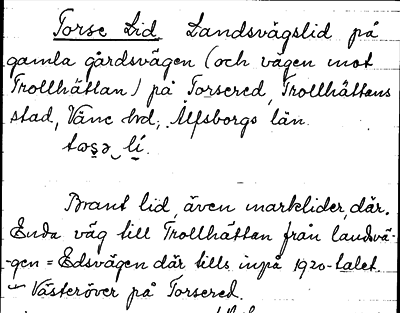 Torse Lid Landsvägslid på
gamla gårdsvägen (och vägen mot
Trollhättan) på Torsered, Trollhättans
stad, Väne hrd, Älfsborgs län.
Brant lid, även marklider, där.
Enda väg till Trollhättan från landsvä-
-gen = Edsvägen där tills inpå 1920-talet
Västeröver på Torsered.